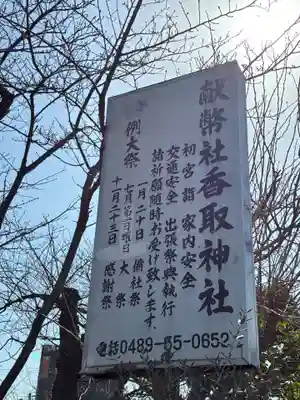 献幣社香取神社
初宮詣 家内安全
交通安全 出張祭典執行
諸祈願随時お受け致します。
例大祭
一月二十日 備社祭
七月第一日曜日 大祭
十一月二十三日 感謝祭
電話0489-55-0652